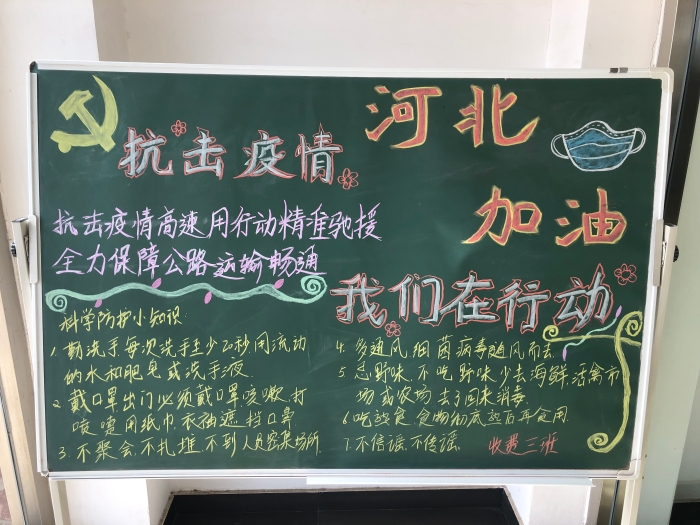 河北
抗击疫情
加油
抗击疫情高速用行动精准驰援
全力保障公路运输畅通
我们在行动
科学防护小知识:
1. 勤洗手每次洗手至少20秒,用流动
的水和肥皂或洗手液
2. 戴口罩出门必须戴口罩,咳嗽、打
喷嚏用纸巾、衣袖遮挡口鼻
3. 不聚会、不扎堆、不到人员密集场所.
4. 多通风、细菌病毒随风而去.
5. 忌野味,不吃野味少去海鲜、活禽市
场或农场去了回来消毒.
6. 吃熟食,食物彻底煮后再食用.
7. 不信谣、不传谣.
收费三班